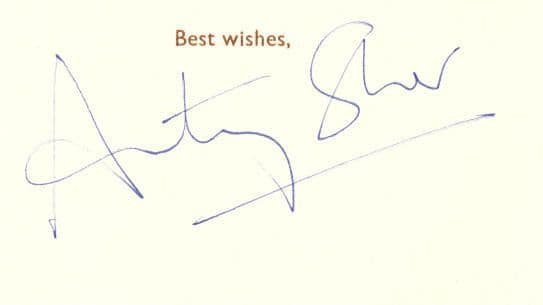 Best wishes,
Antony Sher